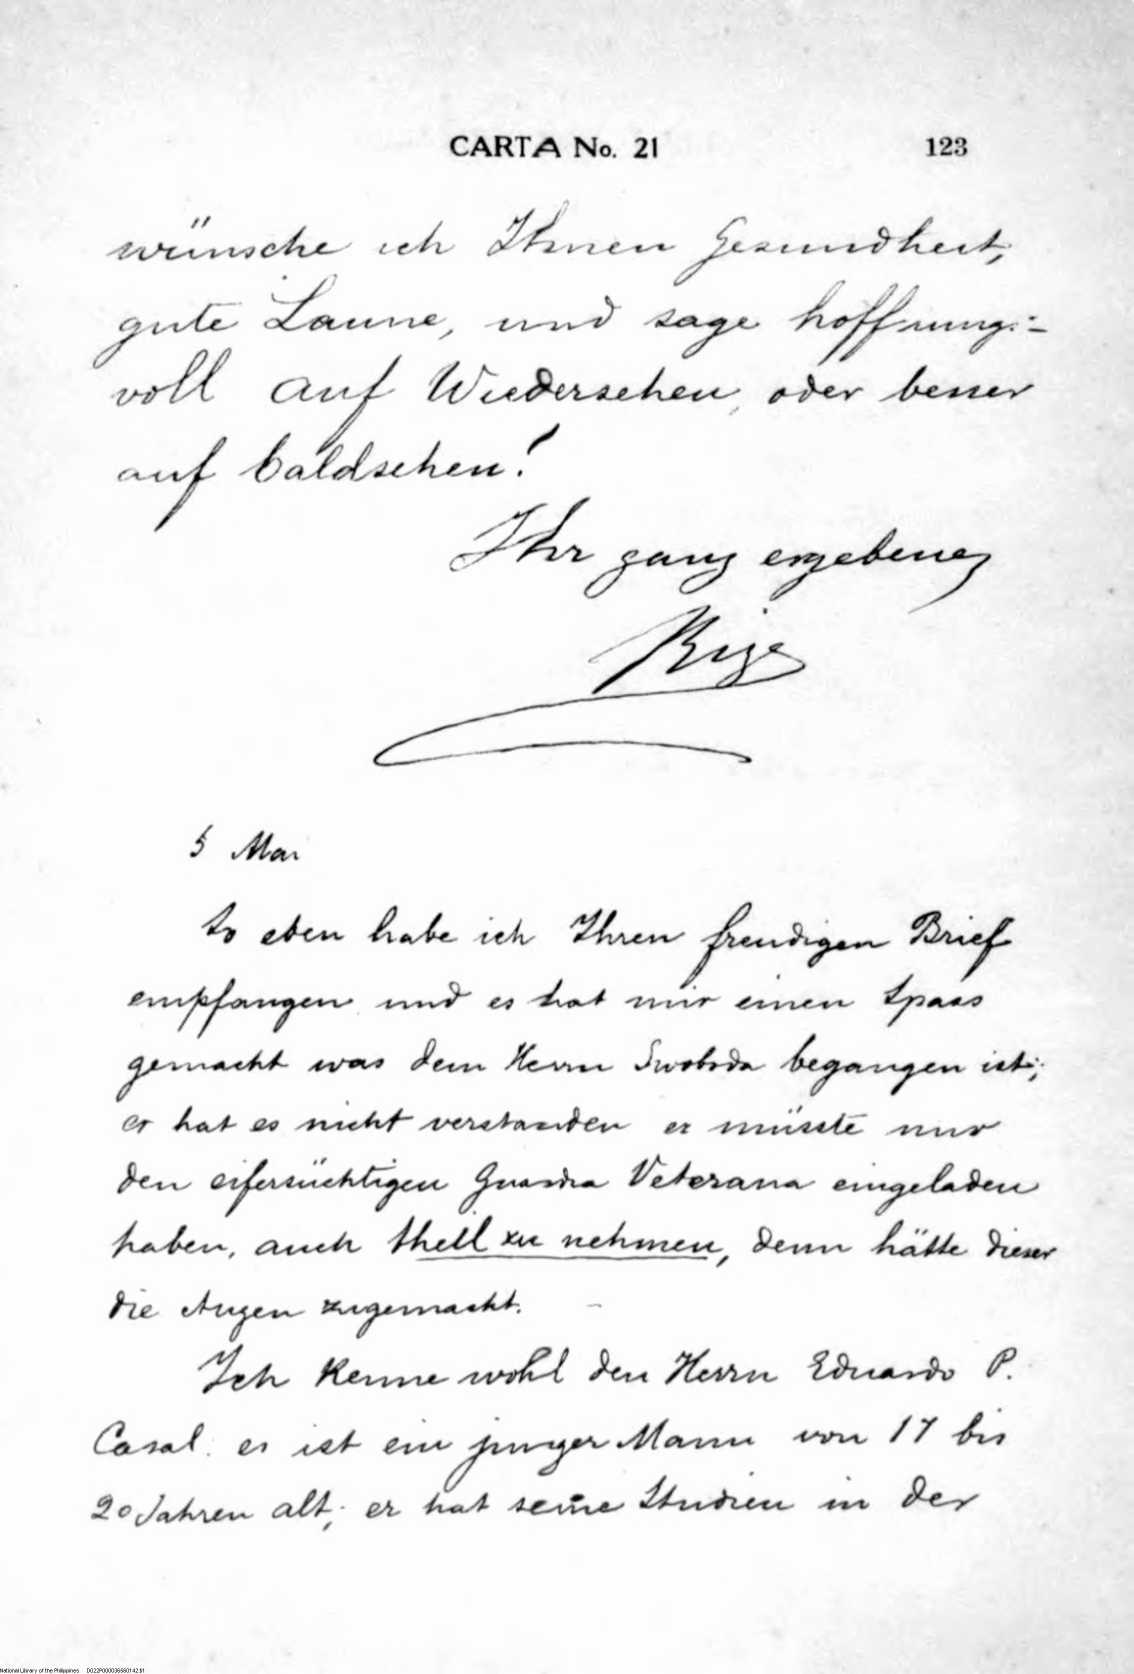 CARTA No. 21 123
wünsche ich Ihnen Gesundheit,
gute Laune, und sage hoffnungs-
voll auf Wiedersehen, oder besser
auf baldsehen!
Ihr ganz ergebener
Rizal
5 Mai
So eben habe ich Ihren freudigen Brief
empfangen und es hat mir einen Spass
gemacht was dem Herrn Swoboda begangen ist;
er hat es nicht verstanden er müsste nur
den eifersüchtigen Guardia Veterana eingeladen
haben, auch theil zu nehmen, denn hätte dieser
die Augen zugemacht.
Ich kenne wohl den Herrn Eduardo P.
Casal: er ist ein junger Mann von 17 bis
20 Jahren alt; er hat seine Studien in der
National Library of the Philippines